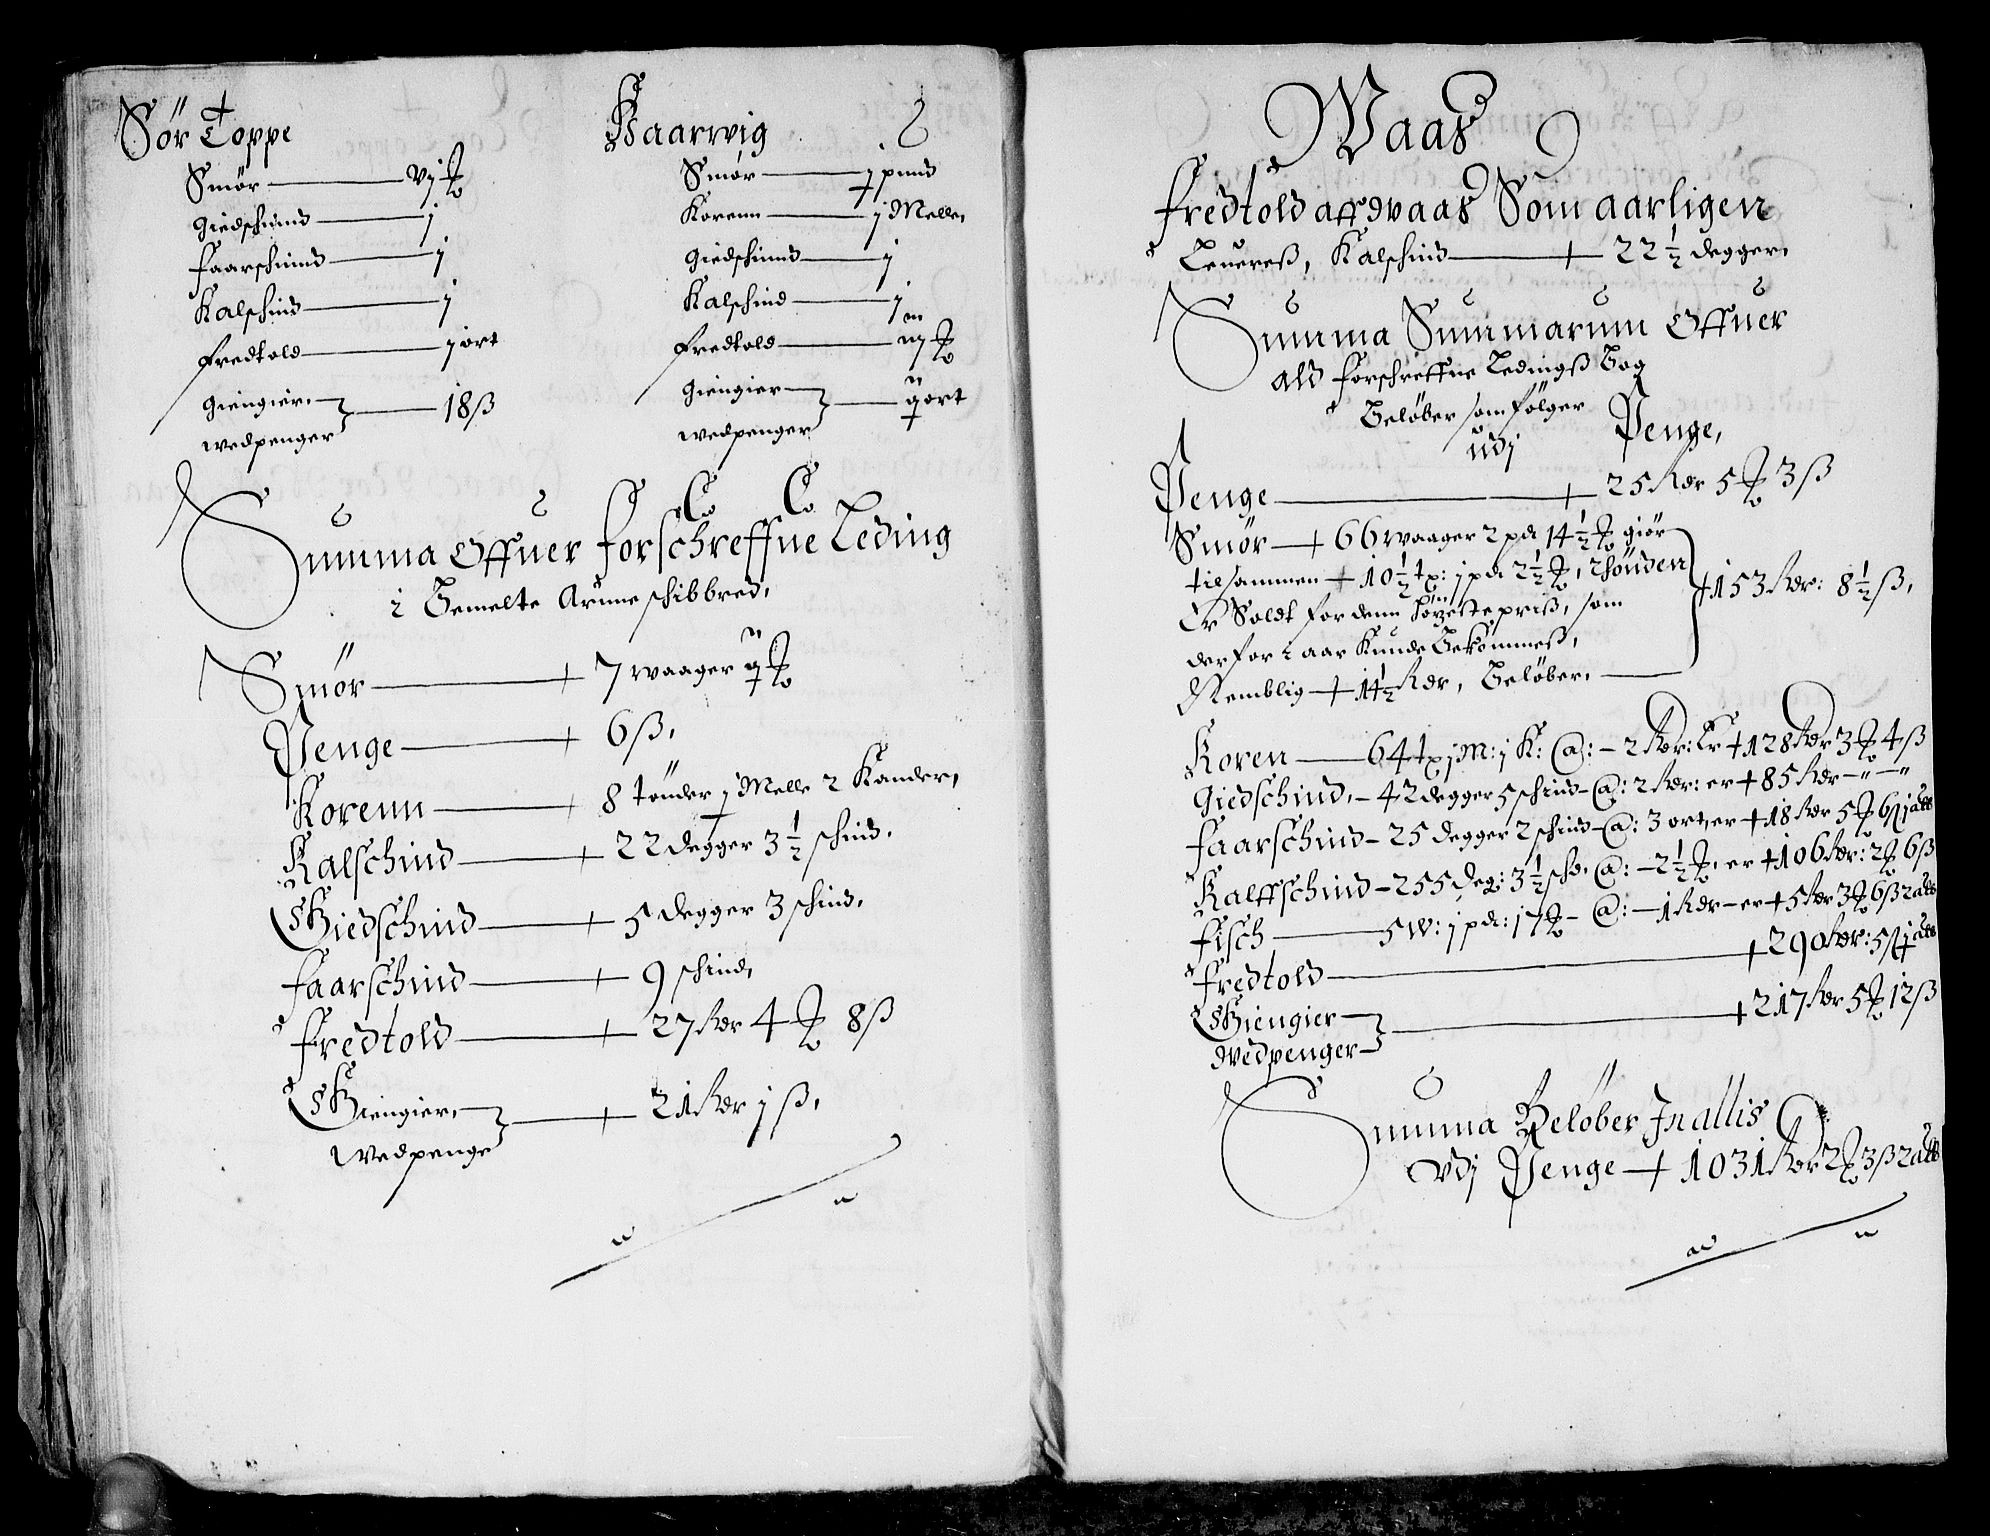 Sör Toppe
Smör — vj ℔
Giedschind — j
Faarschind — j
Kalschind — j
Fredtold — j ort
Giengier
Wedpenger — 18 ß
Haarwig
Smör — j pund
Korenn — j Melle,
Giedschind — j
Kalschind — j
Fredtold — iij ℔
Giengier
Wedpenger — ij ort
Summa Offuer Forschreffne Leding
i Bemelte Arnne schibbred,
Smör — 7 waager ij ℔
Penge — 6 ß,
Korenn — 8 tönder j Melle 2 Kander,
Kalschind — 22 degger 3 1/2 schind,
Giedschind — 5 degger 3 schind,
Faarschind — 9 schind,
Fredtold — 27 Rdr 4 ℔ 8 ß
Giengier,
Wedpenge — 21 Rdr j ß,
Waas
Fredtold aff Waas Som aarligen
Leuereß, Kalschind — 22 1/2 degger,
Summa Summarum Offuer
ald Forschreffne Ledingß Bog
Beløber som følger
udj Penge,
Penge — 25 Rdr 5 ℔ 3 ß
Smör — 66 waager 2 pd 14 1/2 ℔ giör
tilsammen — 10 1/2 tp: j pd 2 1/2 ℔, Thönden
Er Soldt for denn höyeste priß, som
der for i aar Kunde Bekommeß,
Nemblig — 14 1/2 Rdr, Beløber, — 153 Rdr: 8 1/2 ß,
Koren — 64 tp j M: j K: @: - 2 Rdr: Er 128 Rdr 3 ℔ 4 ß
Giedschind, - 42 degger 5 schind - @: 2 Rdr: er 85 Rdr - " - "
Faarschind - 25 degger 2 schind - @: 3 ort, er 18 Rdr 5 ℔ 6 ß j alb
Kalffschind - 255 deg: 3 1/2 schd, @: - 2 1/2 ℔, er 106 Rdr: 2 ℔ 6 ß
Fisch — 5 W: j pd: 17 ℔ - @: - 1 Rdr - er 5 Rdr 3 ℔ 6 ß 2 alb
Fredtold — 290 Rdr: 5 ß j alb
Giengier
Wedpenger — 217 Rdr 5 ℔ 12 ß
Summa Beløber In allis
Vdj Penge — 1031 Rdr 2 ℔ 3 ß 2 alb